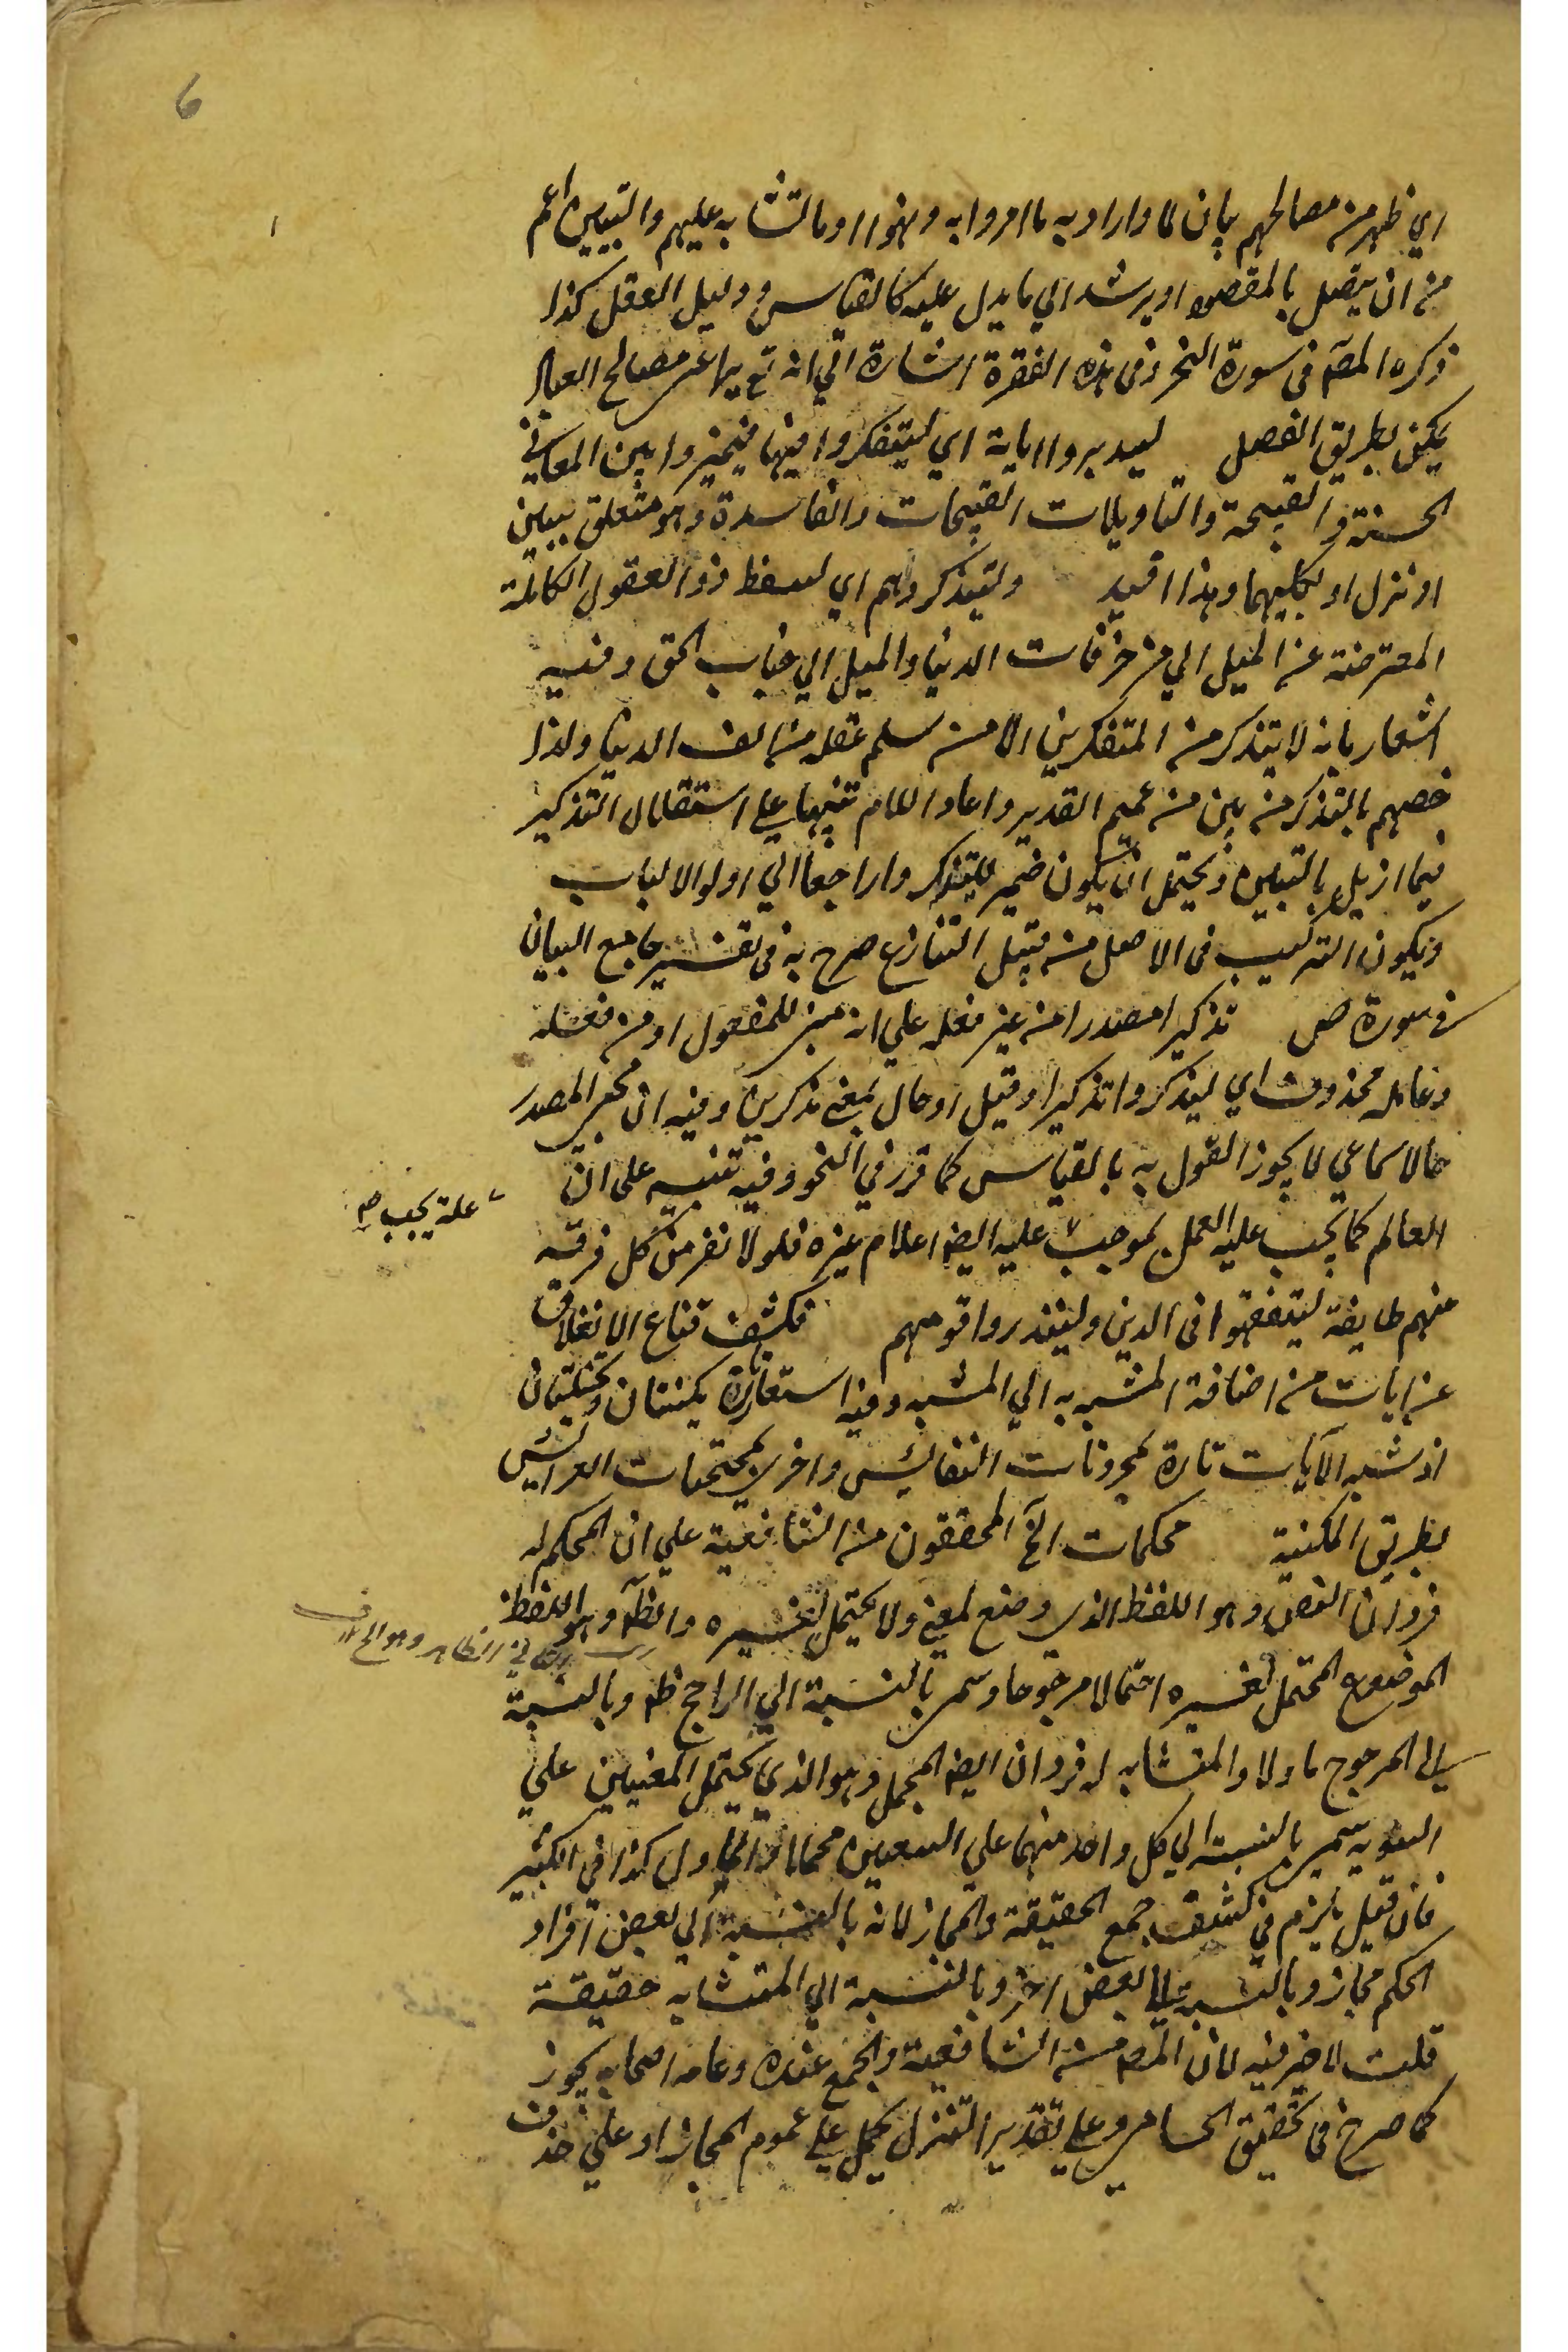 6
اي ظهر من مصالحهم بيان لما وارادبه ما امروا به ونهوا او ما تشابه عليهم والتبيين اعم
من ان يتصل بالمقصود او يرشد الي ما يدل عليه كالقياس ودليل العقل كذا
ذكره المصه في سورة النحل وفي هذه الفقرة اشارة الي انه تع يراعي مصالح العباد
لكن بطريق الفضل ليدبروا اياته اي ليتفكروا فيها فيميزوا بين المعاني
الحسنة والقبيحة والتاويلات القبيحات والفاسدة وهو متعلق ببين
او نزل او بكليهما وهذا افيد وليتذكر اهم اي ليتعظ ذوا العقول الكاملة
المعترضة عن الميل الي مزخرفات الدنيا والميل الي جناب الحق وفيه
اشعار بانه لا يتذكر من المتفكرين الا من سلم عقله من الف الدنيا ولذا
خصهم بالتذكر من بين من عمهم التدبر واعاد اللام تنبيها علي استقلال التذكير
فيما ازيل بالتبيين ويحتمل ان يكون ضمير ليتذكروا راجعا الي اولوا الالباب
ويكون التركيب في الاصل من قبيل التنازع صرح به في تفسير جامع البيان
في سورة ص تذكيرا مصدر من غير فعله علي انه مبني للمفعول او من فعله
وعامله محذوف اي ليذكروا تذكيرا وقيل او حال بمعني مذكرين وفيه ان مجئ المصدر
حالا سماعي لا يجوز القول به بالقياس كما قرر في النحو وفيه تنبيه علي ان
العالم كما يجب عليه العمل بموجب عليه ايضه اعلام غيره فلولا نفر من كل فرقة
علة يجب صح
منهم طايفة ليتفقهوا في الدين ولينذروا قومهم فكشف قناع الانغلاق
عن ايات من اضافة المشبه به الي المشبه وفيه استعارتان مكنيتان وتخييليتان
اذ شبه الآيات تارة بمخزونات النفائس واخري بمحتجبات العرائس
بطريق المكنية محكمات الخ المحققون من الشافعية علي ان المحكم له
فردان النص وهو اللفظ الذي وضع لمعني ولا يحتمل لغيره والظه وهو اللفظ
الظاهر وهو
الموضوع المحتمل لغيره احتمالا مرجوحا وسمي بالنسبة الي الراجح ظه وبالنسبة
الي المرجوح ماولا والمتشابه له فردان ايضه المجمل وهو الذي يحتمل المعنيين علي
السويه سمي بالنسبة الي كل واحد منهما علي التعيين مجملا والماول كذا في الكبير
فان قيل يلزم في كشف جمع الحقيقة والمجاز لانه بالنسبة الي بعض افراد
المحكم مجاز وبالنسبة الي بعض اخر وبالنسبة الي المتشابه حقيقة
قلت لا ضير فيه لان المصه من الشافعية والجمع عنده وعامه اصحابه يجوز
كما صرح في تحقيق الحسامي وعلي تقدير التنزل يحمل علي عموم المجاز او علي حذف